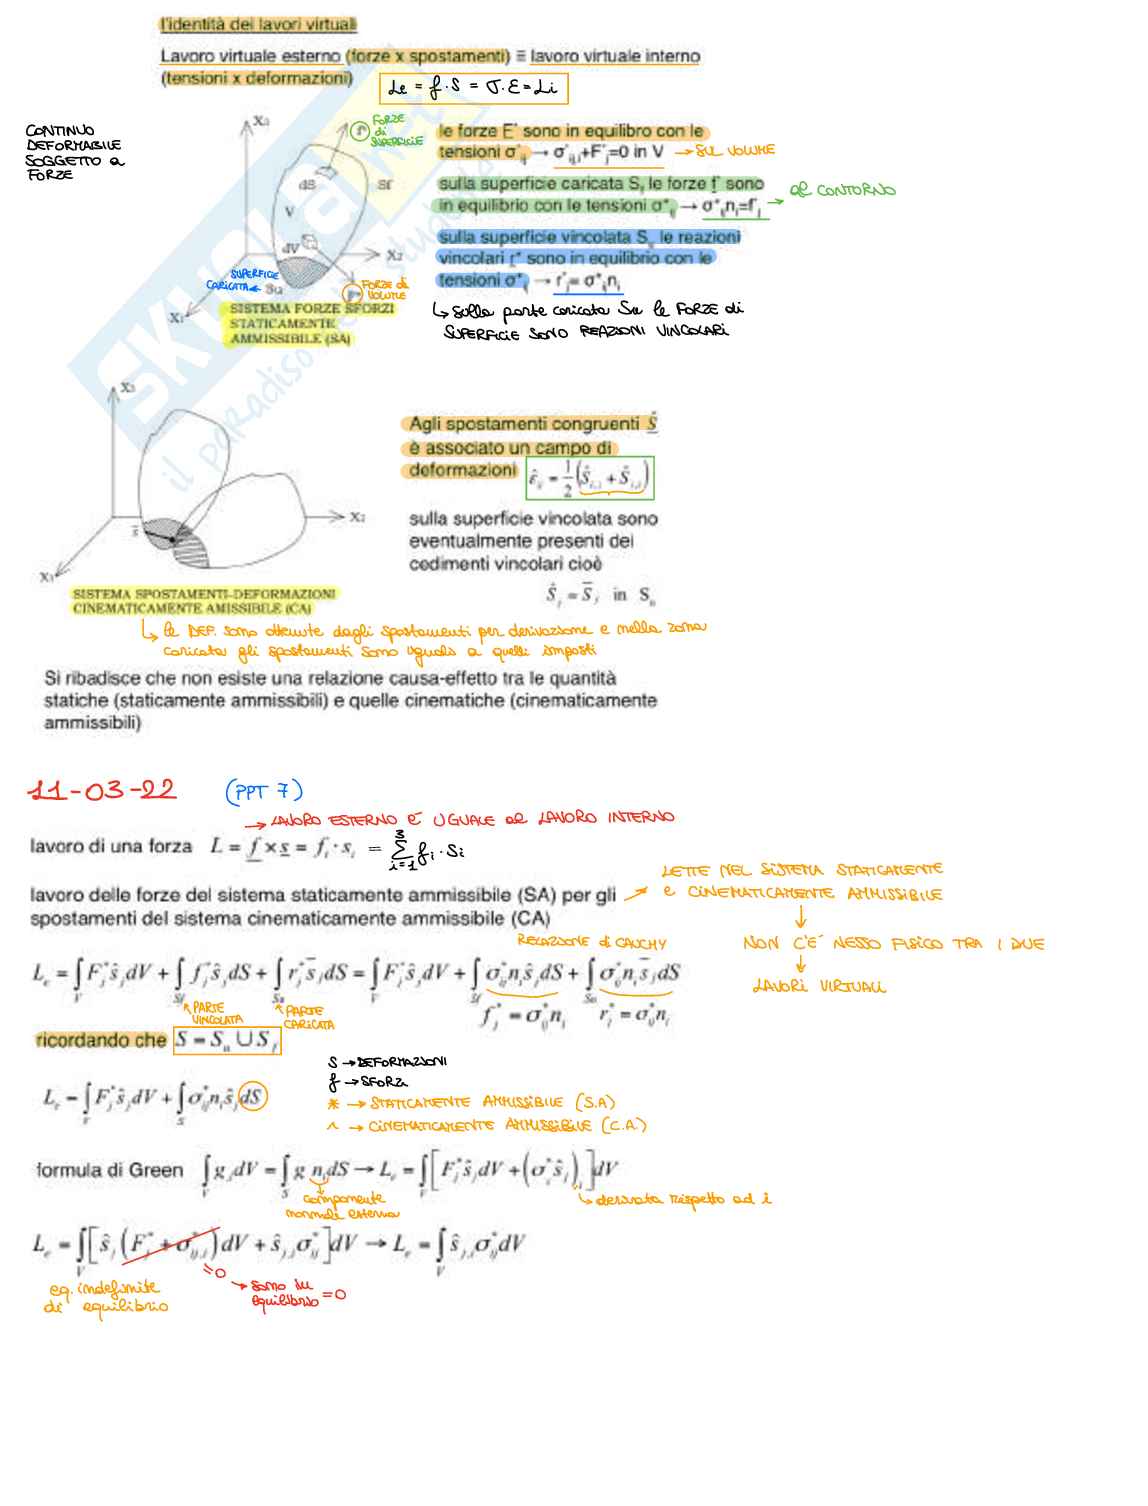 l'identità dei lavori virtuali
Lavoro virtuale esterno (forze x spostamenti) ≡ lavoro virtuale interno
(tensioni x deformazioni)
Le = f·s = σ·ε = Li
CONTINUO
DEFORMABILE
SOGGETTO a
FORZE
X₃
FORZE
di
SUPERFICIE
f*
dS
Sf
V
dV
X₂
SUPERFICE
CARICATA ← Su
FORZE di
VOLUME
F*
X₁
SISTEMA FORZE SFORZI
STATICAMENTE
AMMISSIBILE (SA)
le forze F* sono in equilibro con le
tensioni σ*ij → σ*ij,i+F*j=0 in V → SUL VOLUME
sulla superficie caricata Sf le forze f* sono
in equilibrio con le tensioni σ*ij → σ*ij ni=f*j → al CONTORNO
sulla superficie vincolata Su le reazioni
vincolari r* sono in equilibrio con le
tensioni σ*ij → r*j= σ*ij ni
↳ sulla parte caricata Su le FORZE di
SUPERFICIE SONO REAZIONI VINCOLARI
SKUOLA.net
il paradiso dello studente
X₃
X₂
s̄
X₁
SISTEMA SPOSTAMENTI-DEFORMAZIONI
CINEMATICAMENTE AMISSIBILE (CA)
Agli spostamenti congruenti Ŝ
è associato un campo di
deformazioni ε̂ij = 1/2 (Ŝi,j + Ŝj,i)
sulla superficie vincolata sono
eventualmente presenti dei
cedimenti vincolari cioè
Ŝj = S̄j in Su
↳ le DEF. sono ottenute dagli spostamenti per derivazione e nella zona
caricata gli spostamenti sono uguali a quelli imposti
Si ribadisce che non esiste una relazione causa-effetto tra le quantità
statiche (staticamente ammissibili) e quelle cinematiche (cinematicamente
ammissibili)
11-03-22 (PPT 7)
→ LAVORO ESTERNO È UGUALE al LAVORO INTERNO
lavoro di una forza L = f × s = fi · si = Σ³i=1 fi · si
lavoro delle forze del sistema staticamente ammissibile (SA) per gli
spostamenti del sistema cinematicamente ammissibile (CA)
LETTE NEL SISTEMA STATICAMENTE
e CINEMATICAMENTE AMMISSIBILE
↓
NON C'È NESSO FISICO TRA I DUE
↓
LAVORI VIRTUALI
RELAZIONE di CAUCHY
Le = ∫V F*j ŝj dV + ∫Sf f*j ŝj dS + ∫Su r*j s̄j dS = ∫V F*j ŝj dV + ∫Sf σ*ij ni ŝj dS + ∫Su σ*ij ni s̄j dS
PARTE
VINCOLATA
PARTE
CARICATA
f*j = σ*ij ni
r*j = σ*ij ni
ricordando che S = Su ∪ Sf
S → DEFORMAZIONI
f → SFORZI
* → STATICAMENTE AMMISSIBILE (S.A)
^ → CINEMATICAMENTE AMMISSIBILE (C.A.)
Le = ∫V F*j ŝj dV + ∫S σ*ij ni ŝj dS
formula di Green ∫V g,i dV = ∫S g ni dS → Le = ∫V [F*j ŝj dV + (σ*i ŝj),i] dV
componente
normale esterna
↳ derivata rispetto ad i
Le = ∫V [ŝj (F*j + σ*ij,i) dV + ŝj,i σ*ij] dV → Le = ∫V ŝj,i σ*ij dV
=0
eq. indefinite
di equilibrio
→ sono in
equilibrio = 0